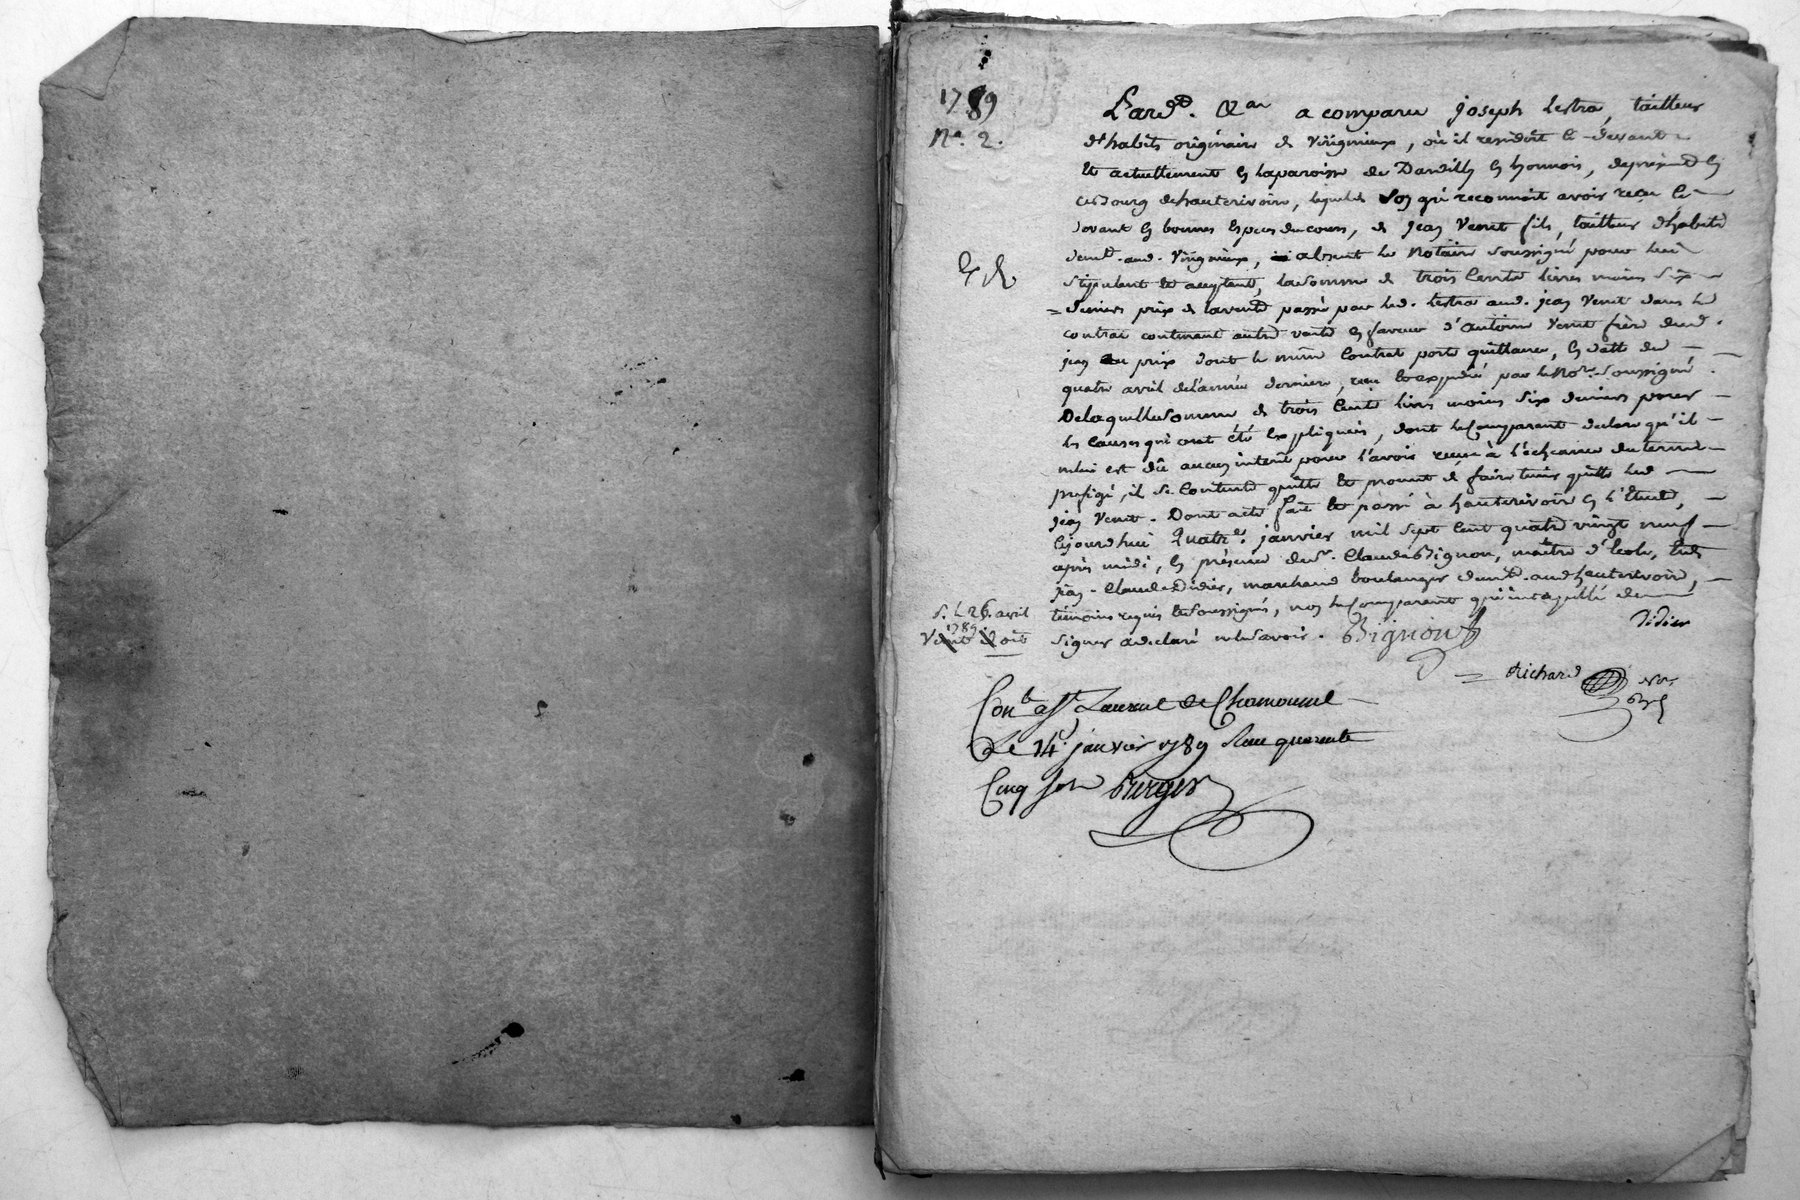 1789
N.º 2.
Pard. &ar a comparu Joseph Lestra, tailleur
d'habits originaire de Virigneux, où il residoit cy devant
et actuellement en la paroisse de Dardilly en Lyonnois, de présent en
ce bourg de hauterivoire, lequel de son gré reconnoit avoir reçu cy
devant en bonnes especes du cours, de Jean Venet fils, tailleur d'habits
demt. aud. Virigneux, absent le Notaire soussigné pour lui
stipulant et acceptant, la somme de trois Cents livres moins six
deniers prix de la vente passé par led. Lestra aud. jean Venet dans le
contrat contenant autre vente en faveur d'antoine Venet frère dud.
jean au prix dont le même Contrat porte quittance, en datte du
quatre avril de l'année derniere, reçu et expedié par le No.re soussigné.
De laquelle somme de trois Cents livres moins six deniers pour
les causes qui ont été expliquées, dont le Comparant declare qu'il
ne lui est dû aucun interêt pour l'avoir reçue à l'échéance du terme
prefigé, il se Contente quitte et promet de faire tenir quitte led
jean Venet. Dont acte fait et passé à hauterivoire en l'Etude,
cejourdhui Quatre. janvier mil sept Cent quatre vingt neuf
après midi, en présence du sr. Claude Bignon, maître d'Ecole, et de
jean-Claude Didier, marchand boulanger demt. aud hauterivoire,
temoins requis et soussignés, non le Comparant qui interpellé de
signer a declaré ne le savoir. Bignon Didier
S. L. 26. avril
1789
Richard
Con.le a St Laurent de Chamousset
Le 14. janvier 1789 Reçu quarante
Cinq sols Berger